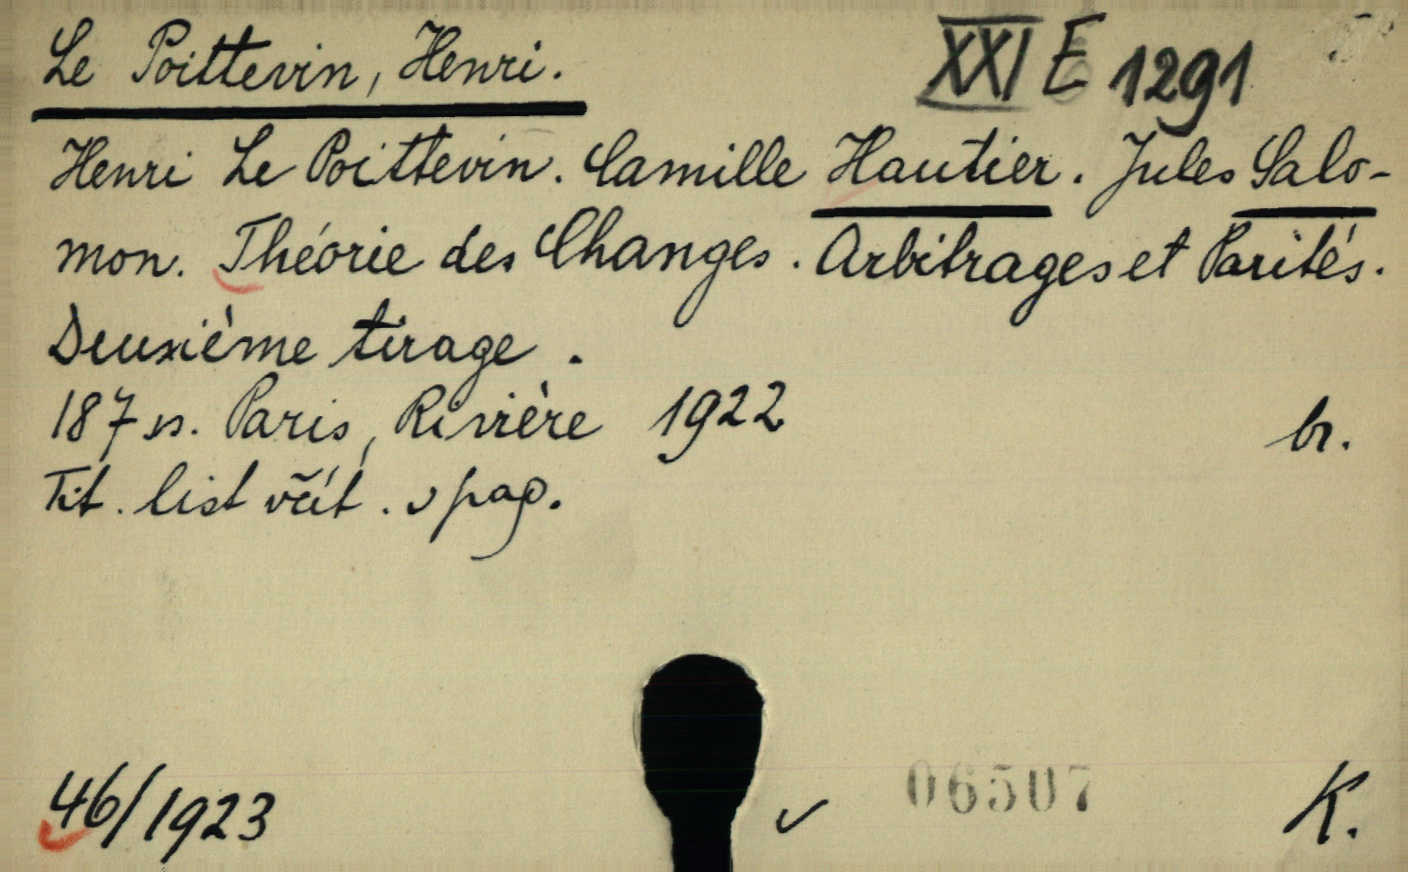 Le Poittevin, Henri.
XXI E 1291
Henri Le Poittevin. Camille Hautier. Jules Salo-
mon. Théorie des Changes. Arbitrages et Parités.
Deuxième tirage.
187 s. Paris, Rivière 1922
br.
Tit. list včít. v pag.
46/1923
06507
K.